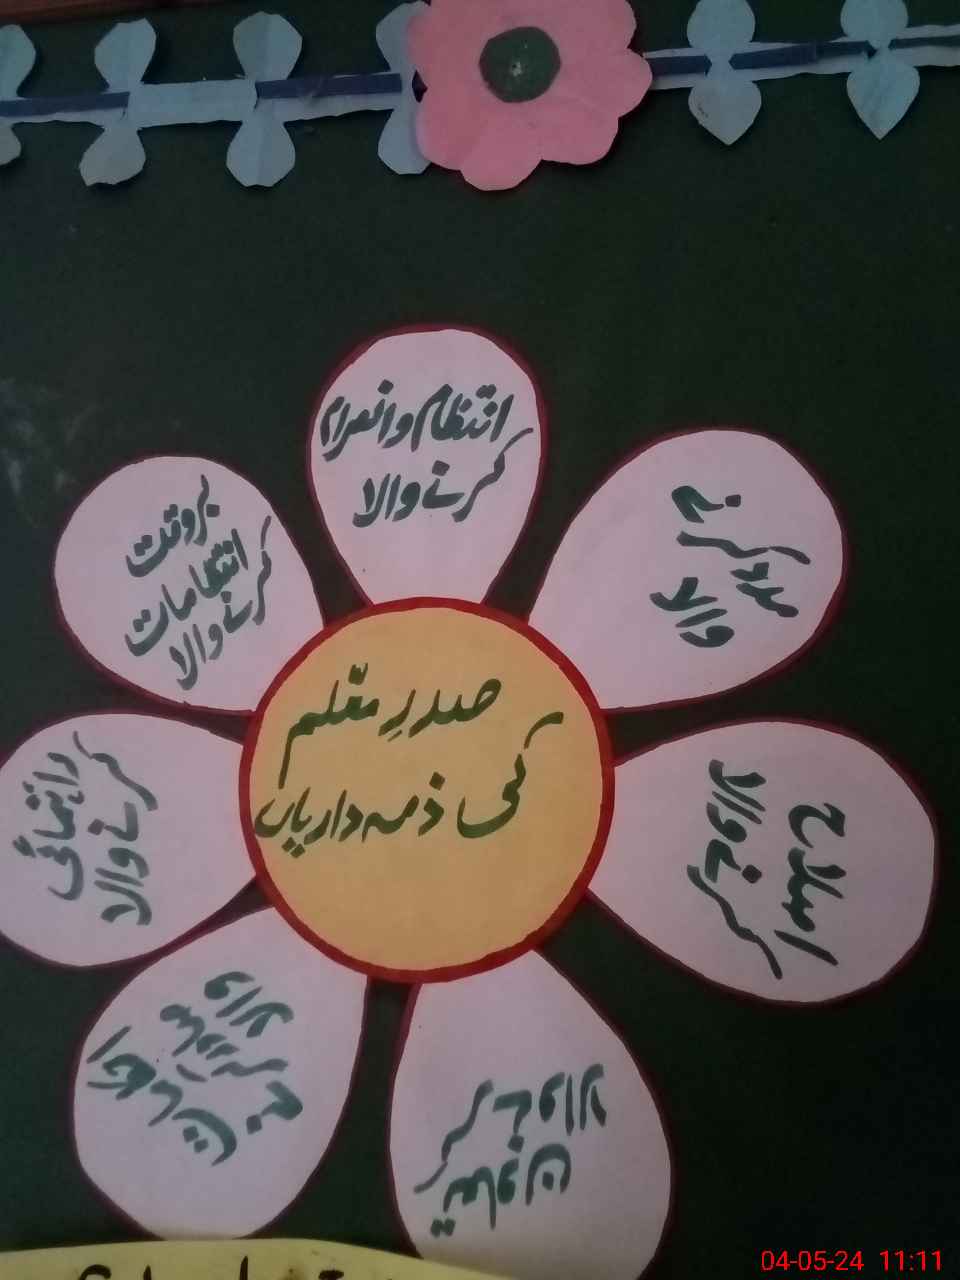 صدرِ معلم
کی ذمہ داریاں
انتظام و انصرام
کرنے والا
مدد کرنے
والا
اصلاح
کرنے والا
تعاون
کرنے والا
راہنمائی
کرنے والا
بروقت
انتظامات
کرنے والا
04-05-24 11:11